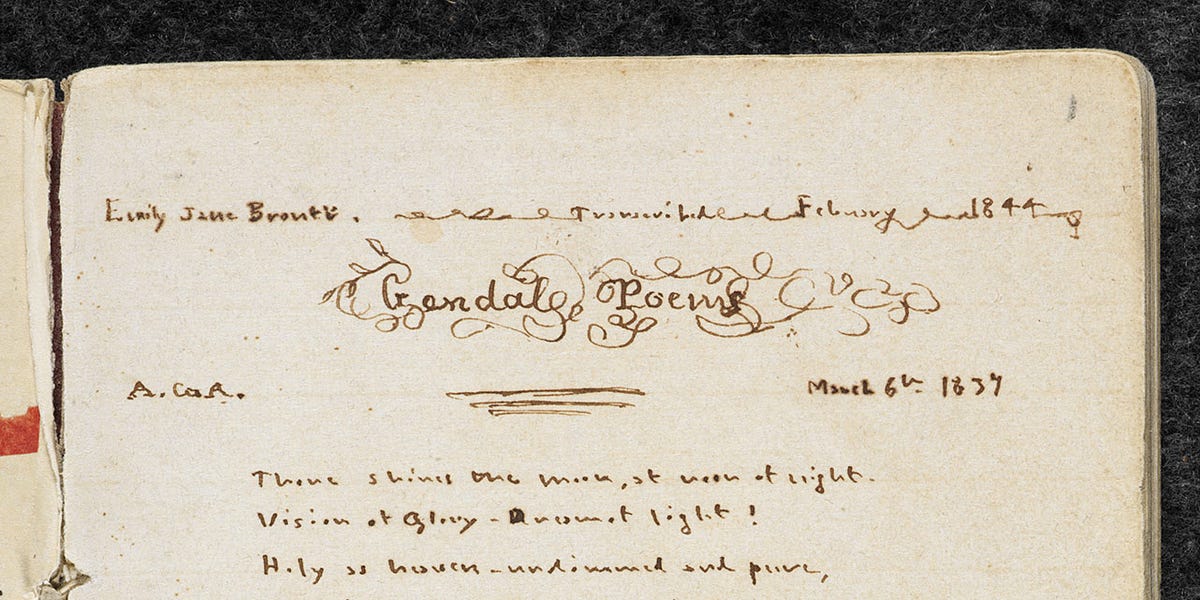 Emily Jane Brontë. Transcribed February 1844
Gondal Poems
A.G.A. March 6th 1837
There shines the moon, at noon of night.
Vision of Glory - Dream of light!
Holy as heaven - undimmed and pure,